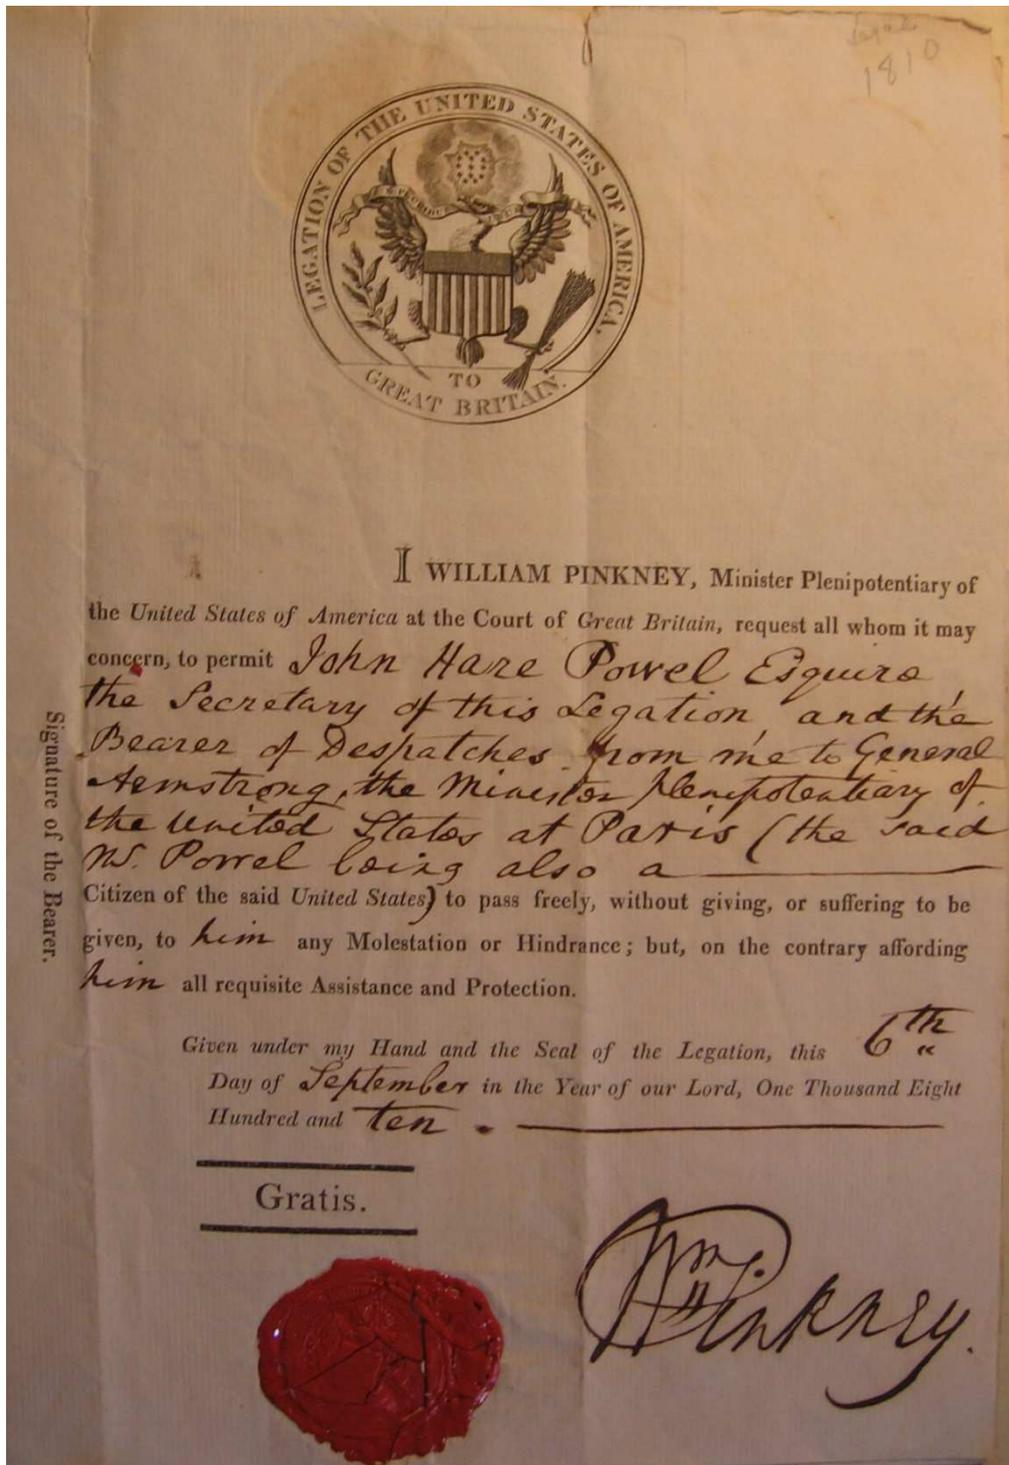 1810
LEGATION OF THE UNITED STATES OF AMERICA,
TO
GREAT BRITAIN.
I WILLIAM PINKNEY, Minister Plenipotentiary of
the United States of America at the Court of Great Britain, request all whom it may
concern, to permit John Hare Powel Esquire
the Secretary of this Legation and the
Bearer of Despatches from me to General
Armstrong, the Minister Plenipotentiary of
the United States at Paris (the said
Mr. Powel being also a
Citizen of the said United States) to pass freely, without giving, or suffering to be
given, to him any Molestation or Hindrance; but, on the contrary affording
him all requisite Assistance and Protection.
Given under my Hand and the Seal of the Legation, this 6th
Day of September in the Year of our Lord, One Thousand Eight
Hundred and ten.
Gratis.
Wm. Pinkney.
Signature of the Bearer.